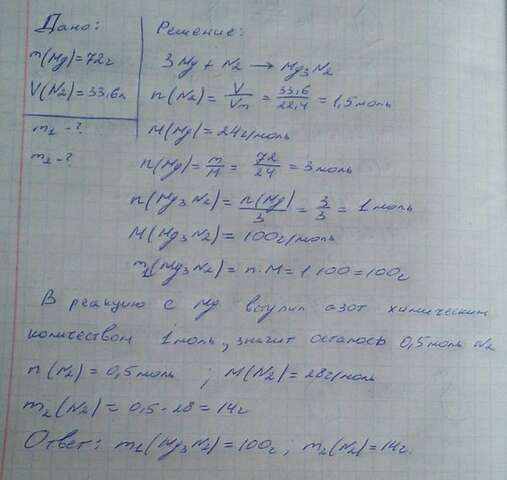 Дано:
m(Mg)=72г
V(N2)=33,6л
m1 - ?
m2 - ?
Решение:
3Mg + N2 → Mg3N2
n(N2) = V/Vm = 33,6/22,4 = 1,5 моль
M(Mg) = 24г/моль
n(Mg) = m/M = 72/24 = 3 моль
n(Mg3N2) = n(Mg)/3 = 3/3 = 1 моль
M(Mg3N2) = 100г/моль
m1(Mg3N2) = n·M = 1·100 = 100г
В реакцию с Mg вступил азот химическим
количеством 1 моль, значит осталось 0,5 моль N2
n(N2) = 0,5 моль ; M(N2) = 28г/моль
m2(N2) = 0,5·28 = 14г
Ответ: m1(Mg3N2) = 100г ; m2(N2) = 14г.